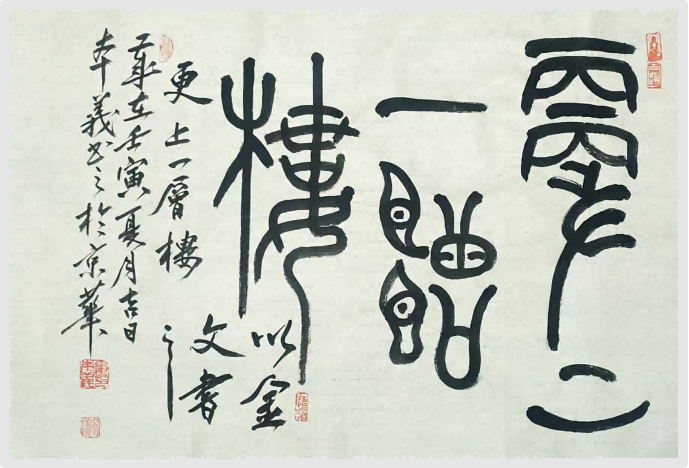 更上
一層
樓
以金
文書
之
更上一層樓
歲在壬寅夏月吉日
本義書之於京華